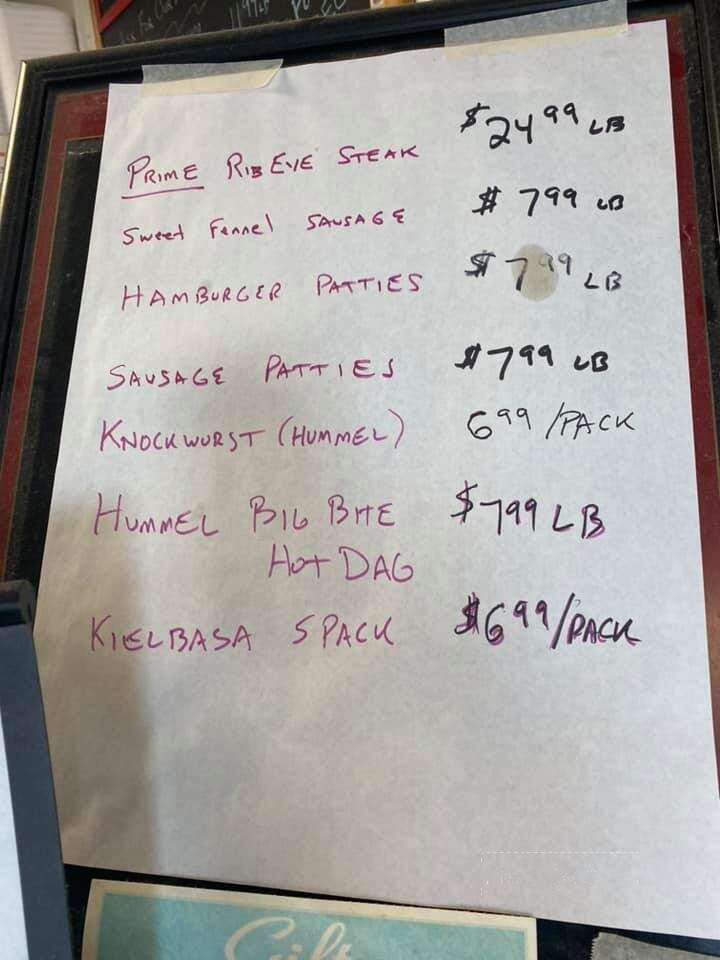 PRIME RIB EYE STEAK $24 99 LB
Sweet Fennel SAUSAGE $ 7 99 LB
HAMBURGER PATTIES $ 7 99 LB
SAUSAGE PATTIES $ 7 99 LB
KNOCKWURST (HUMMEL) 6 99 /PACK
HUMMEL BIG BITE $ 7 99 LB
HOT DAG
KIELBASA 5 PACK $ 6 99/PACK
Gift